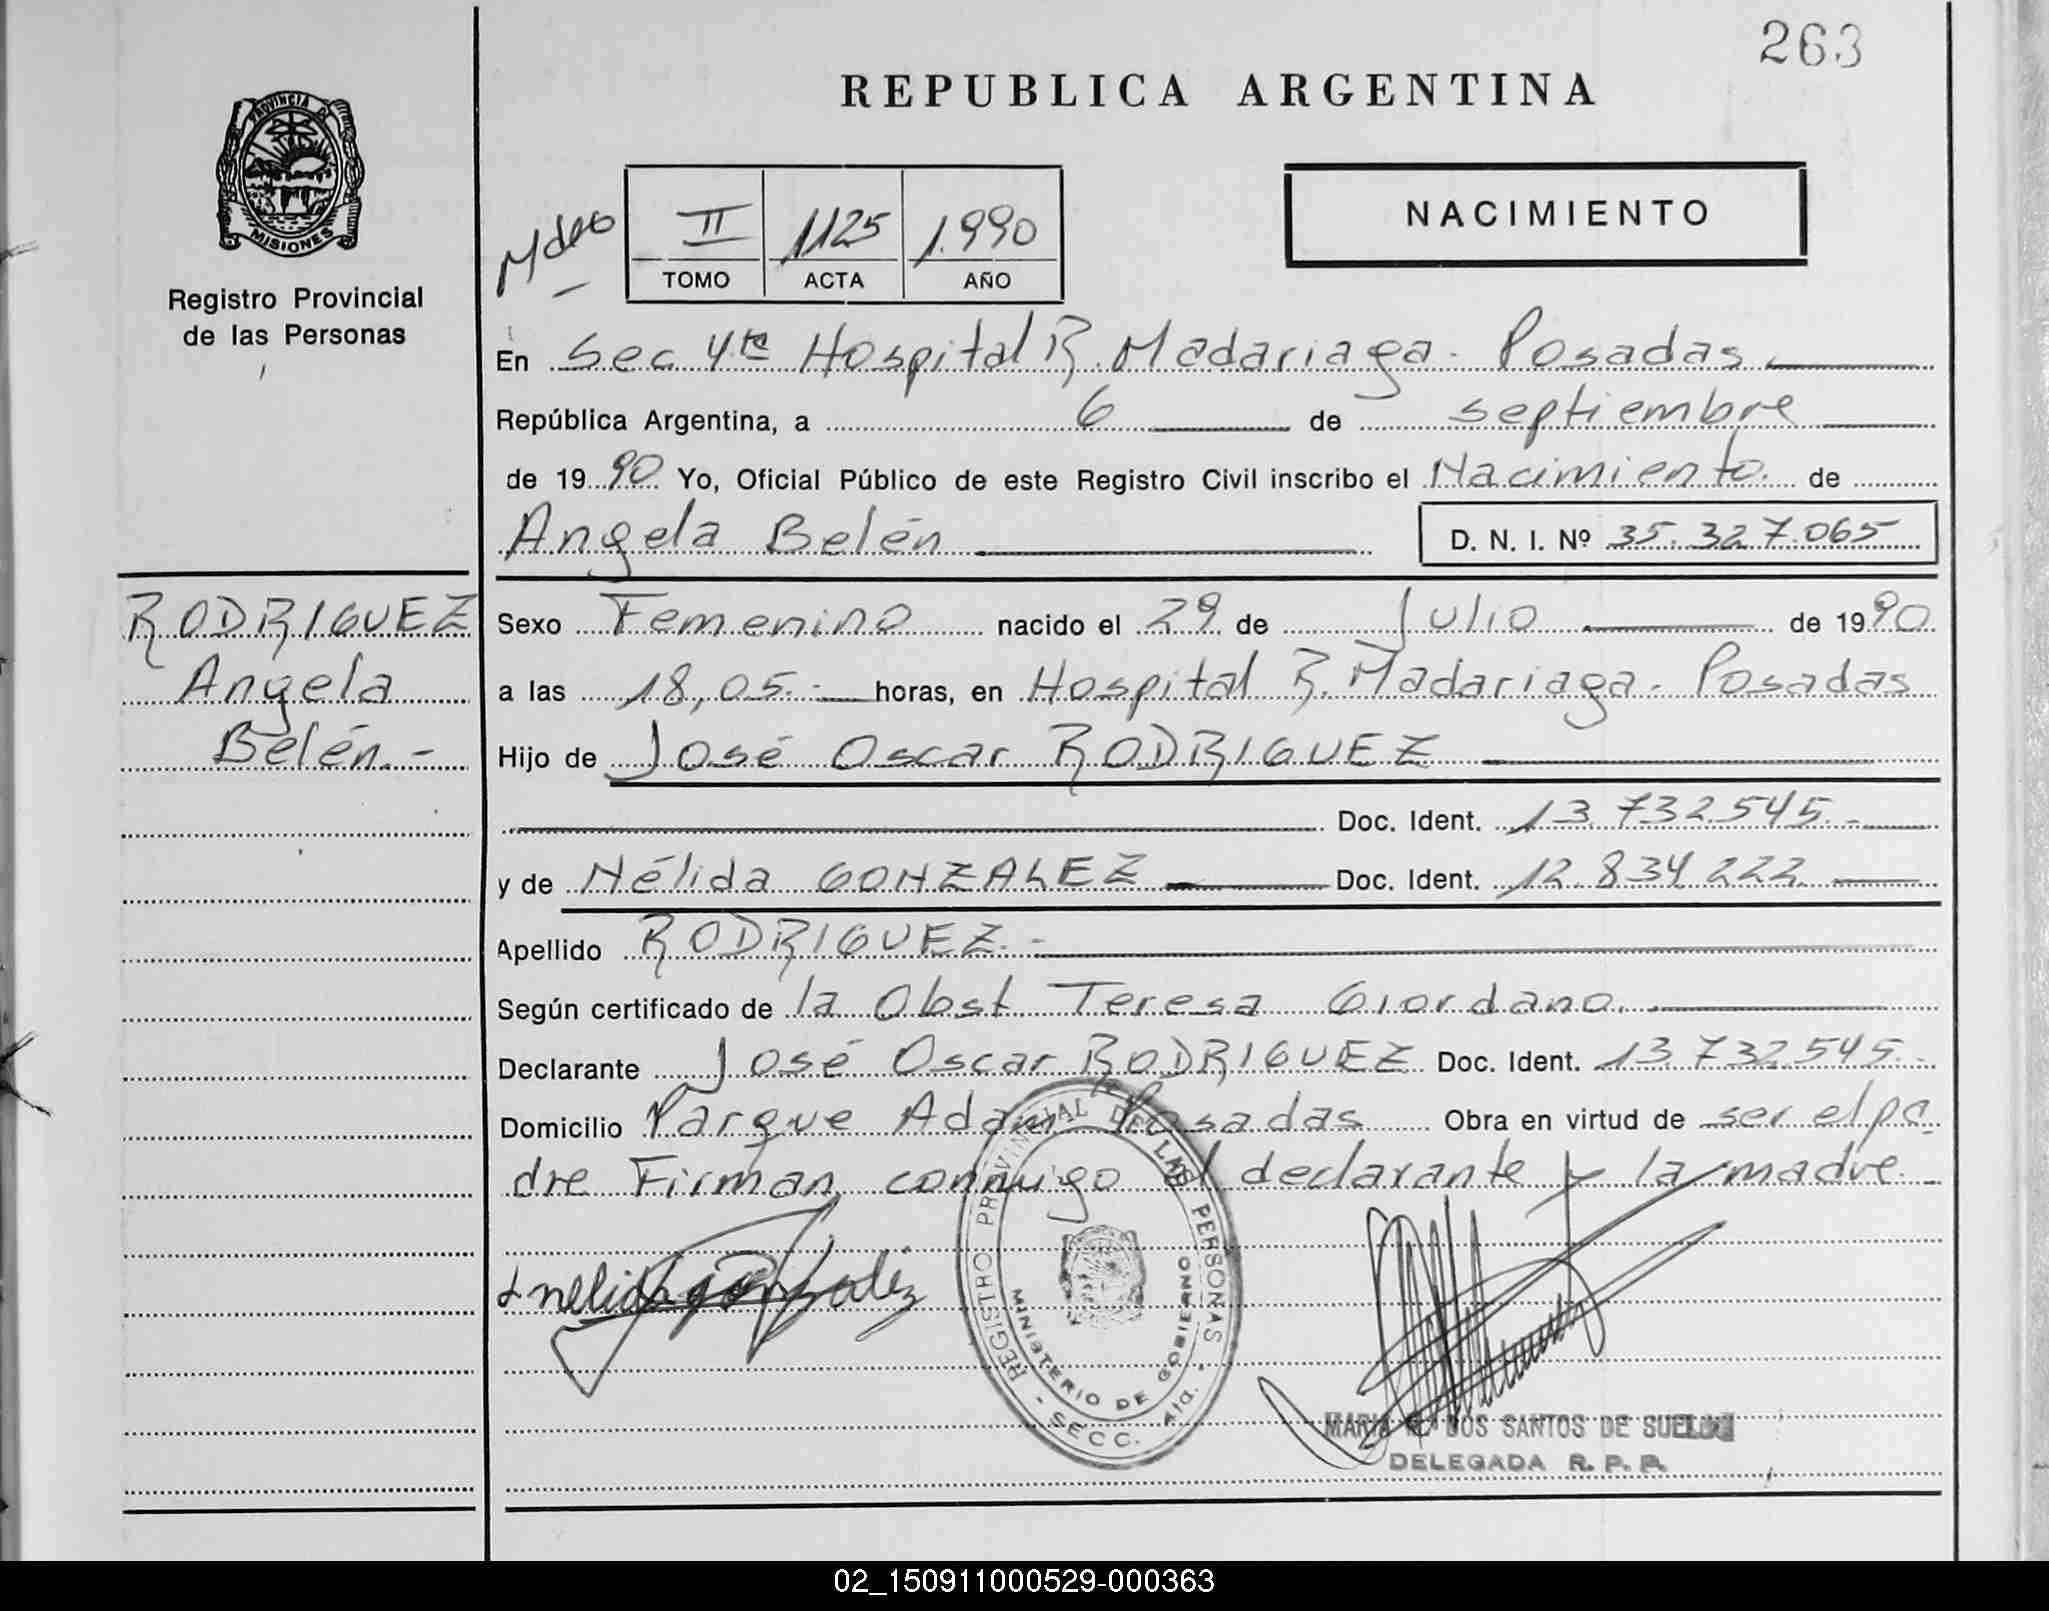 263
REPUBLICA ARGENTINA
PROVINCIA D
MISIONES
Registro Provincial
de las Personas
II 1125 1.990
TOMO ACTA AÑO
NACIMIENTO
En Sec 4ta Hospital R. Madariaga - Posadas
República Argentina, a 6 de septiembre
de 1990 Yo, Oficial Público de este Registro Civil inscribo el Nacimiento de
Angela Belén D. N. I. Nº 35.327.065
RODRIGUEZ
Angela
Belén.-
Sexo Femenino nacido el 29 de Julio de 1990
a las 18,05.- horas, en Hospital R. Madariaga - Posadas
Hijo de José Oscar RODRIGUEZ
Doc. Ident. 13.732.545.-
y de Nélida GONZALEZ Doc. Ident. 12.834.222
Apellido RODRIGUEZ.-
Según certificado de la Obst Teresa Giordano.
Declarante José Oscar RODRIGUEZ Doc. Ident. 13.732.545.-
Domicilio Parque Adam Posadas Obra en virtud de ser el pa
dre Firman conmigo el declarante y la madre.
REGISTRO PROVINCIAL DE LAS PERSONAS - SECC. 4ta. -
MINISTERIO DE GOBIERNO
DOS SANTOS DE
DELEGADA R. P. P.
02_150911000529-000363